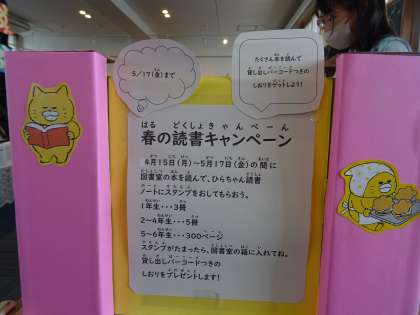 5/17(金)まで
たくさん本を読んで
貸し出しバーコードつきの
しおりをゲットしよう!
はる どくしょきゃんぺーん
春の読書キャンペーン
4月15日(月)~5月17日(金)の間に
図書室の本を読んで、ひらちゃん読書
ノートにスタンプをおしてもらおう。
1年生・・・3冊
2~4年生・・・5冊
5~6年生・・・300ページ
スタンプがたまったら、図書室の箱に入れてね。
貸し出しバーコードつきの
しおりをプレゼントします!